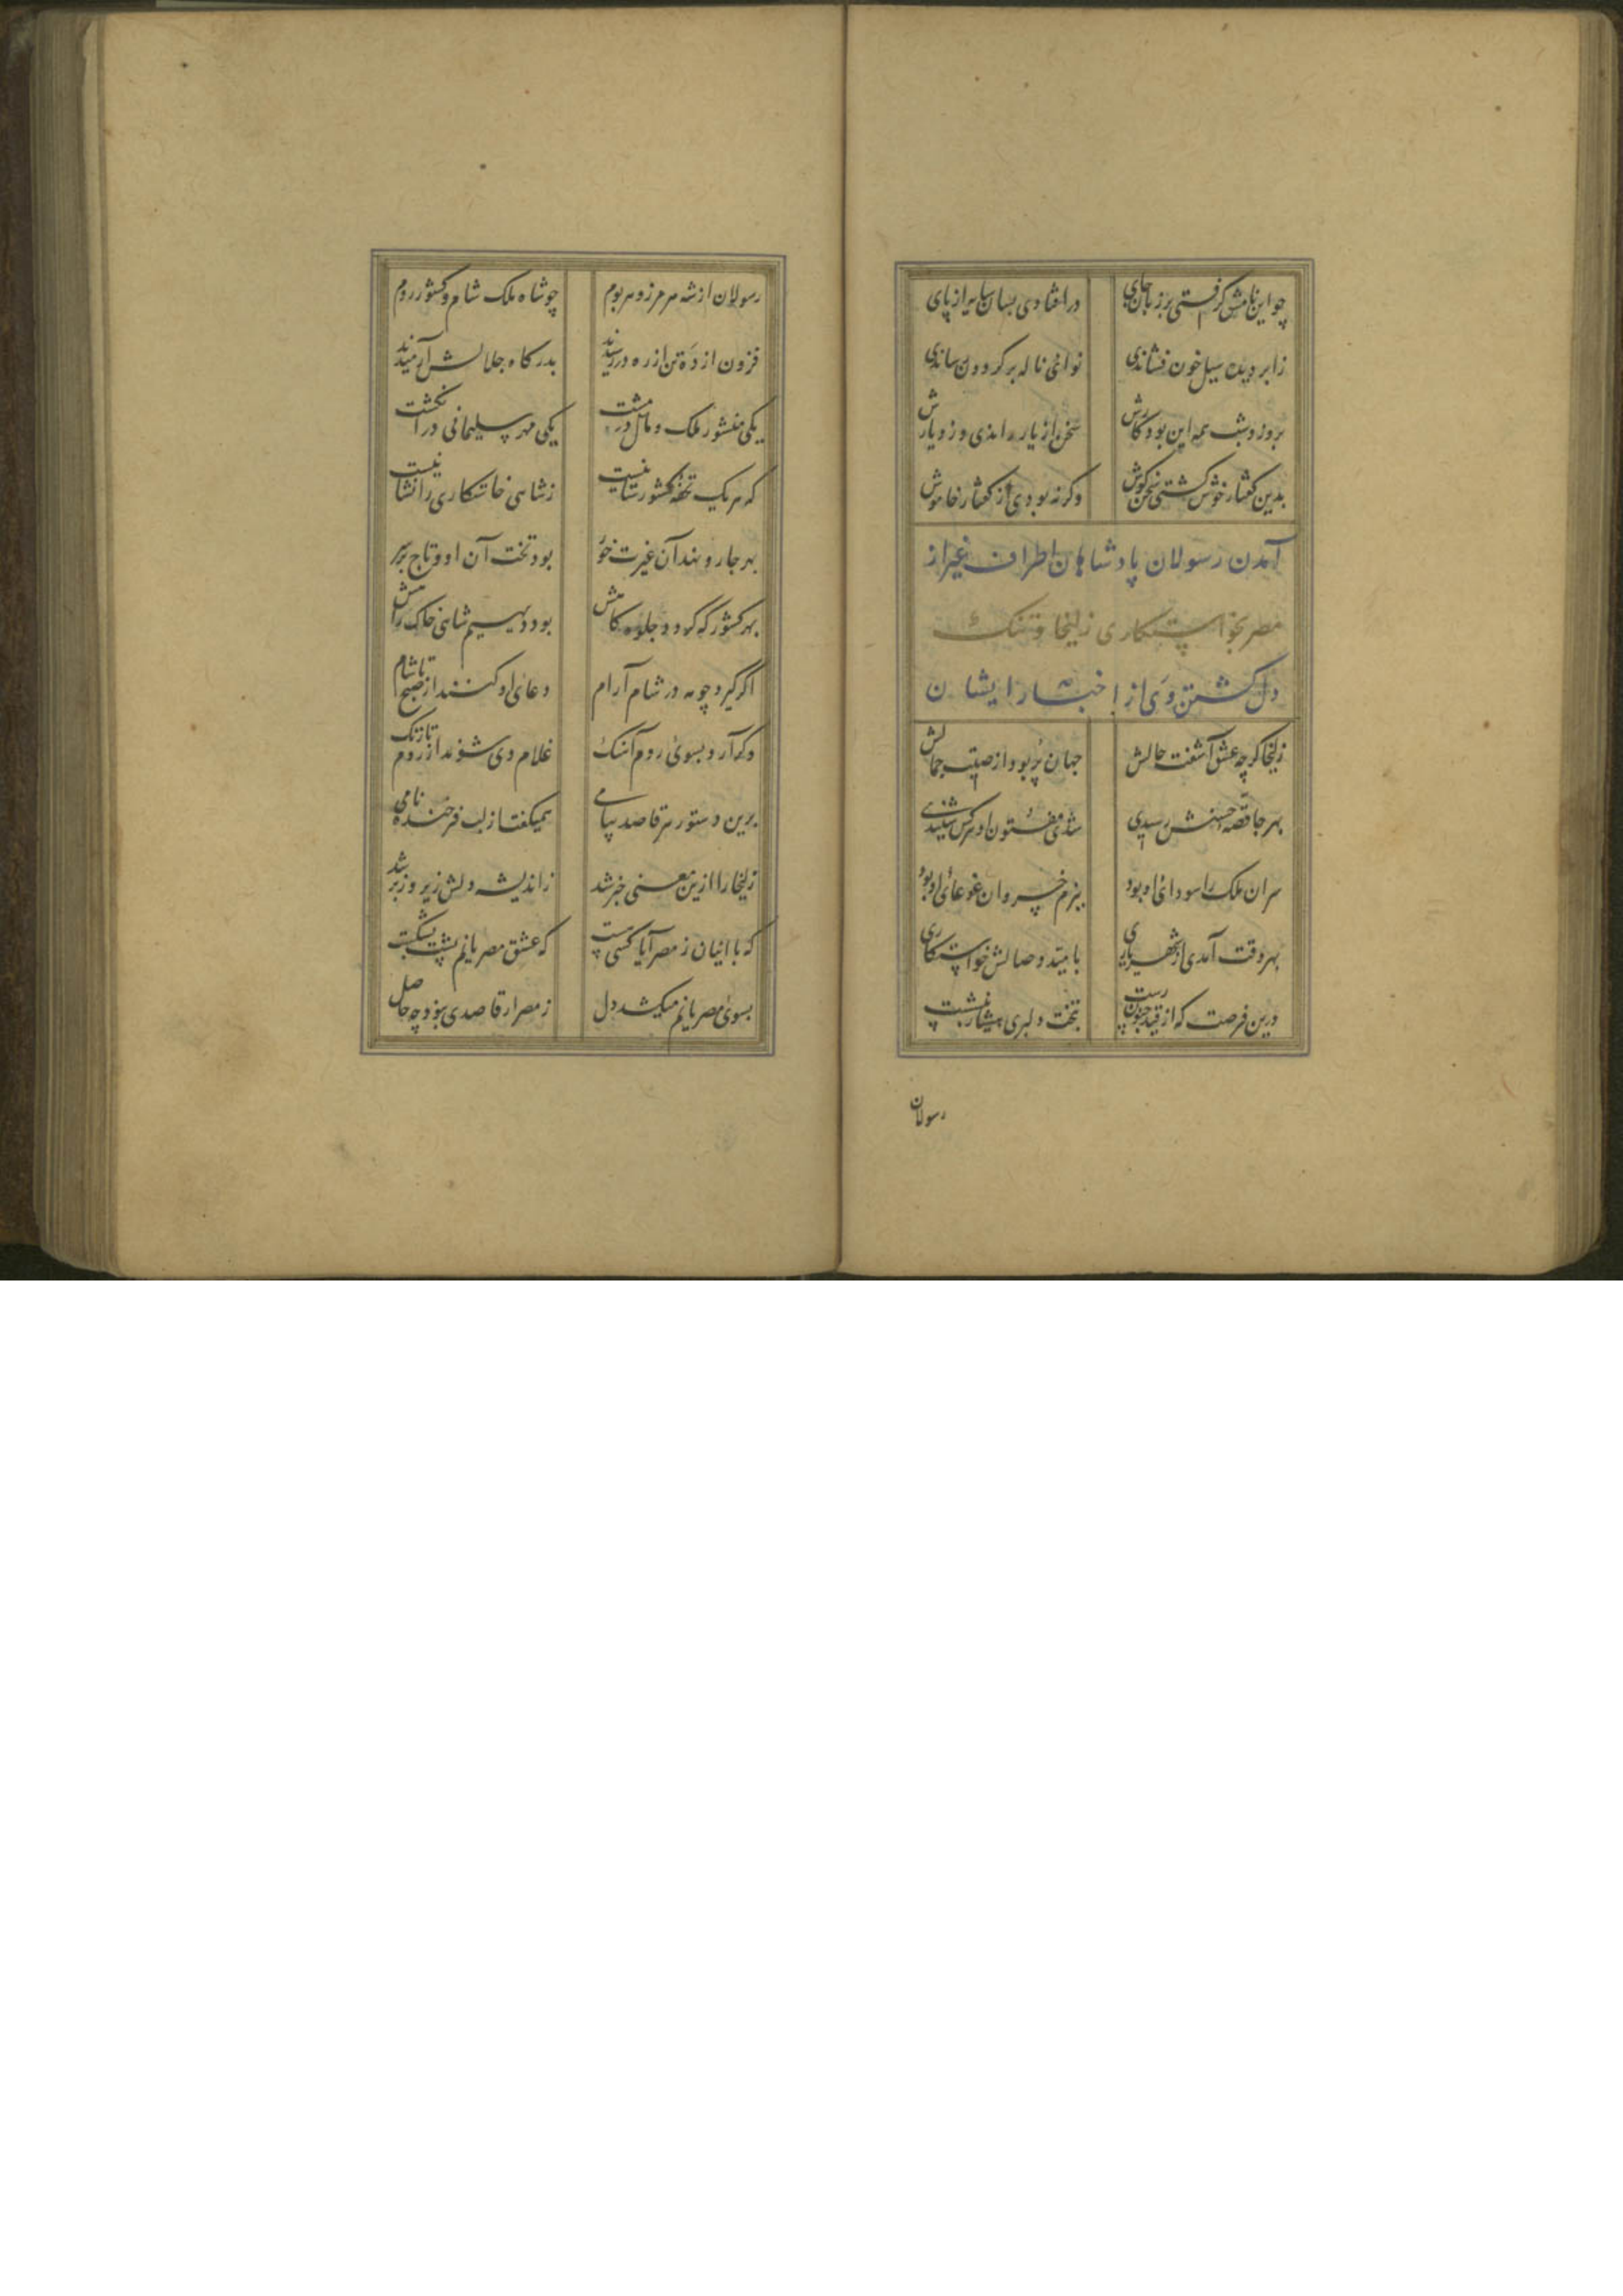 چو این نامش گرفتی بر زبان جای در افتادی بسان سایه از پای
ز ابر دیده سیل خون فشاندی نوای ناله بر گردون رساندی
بروز و شب همه این بود کارش سخن از یار راندی وز دیارش
بدین گفتار خوش گشتی سخن کوش وگرنه بودی از گفتار خاموش
آمدن رسولان پادشاهان اطراف غیر از
مصر بخواستکاری زلیخا و تنک
دل گشتن وی از اخبار ایشان
زلیخا گرچه عشق آشفت حالش جهان پر بود از صیت جمالش
بهر جا قصه حسنش رسیدی شدی مفتون او هر کس شنیدی
سران ملک را سودای او بود ببزم خسروان غوغای او بود
بهر وقت آمدی از شهریاری بامید وصالش خواستکاری
درین فرصت که از قید جنون رست بتخت دلبری هشیار بنشست
رسولان
رسولان از شه هر مرز و هر بوم چو شاه ملک شام و کشور روم
فزون از ده تن از ره در رسیدند بدرگاه جلالش آرمیدند
یکی منشور ملک و مال در مشت یکی مهر سلیمانی در انگشت
که هر یک تحفه کشورستانیست ز شاهی خاستکاری را نشانیست
بهر جا رو نهد آن غیرت خور بود تخت آن او و تاج بر سر
بهر کشور که گردد جلوه گاهش بود دیهیم شاهی خاک راهش
اگر گیرد چو مه در شام آرام دعای او کنند از صبح تا شام
وگر آرد بسوی روم آهنگ غلام وی شوند از روم تا زنگ
برین دستور هر قاصد پیامی همیگفت از لب فرخنده نامی
زلیخا را ازین معنی خبر شد ز اندیشه دلش زیر و زبر شد
که با اینان ز مصر آیا کسی هست که عشق مصریانم پشت بشکست
بسوی مصریانم میکشد دل ز مصر ار قاصدی نبود چه حاصل